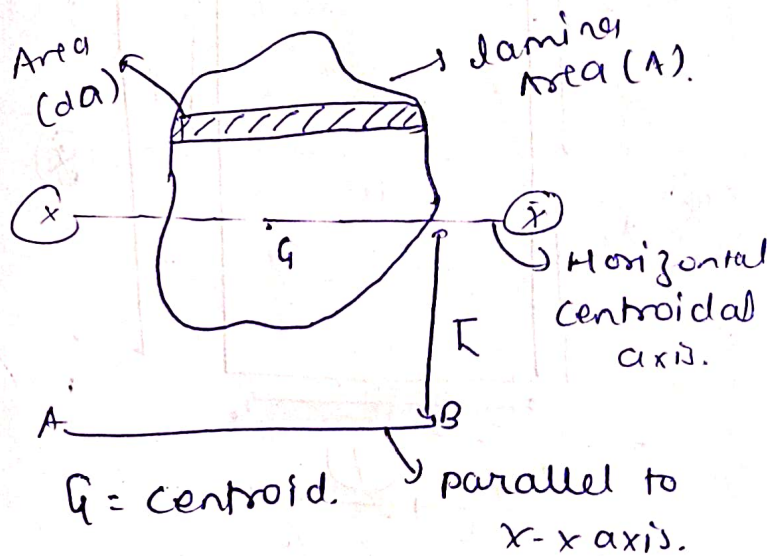 Area
(da)
lamina
Area (A).
x
x̄
G
Horizontal
centroidal
axis.
A
B
G = centroid.
parallel to
x-x axis.